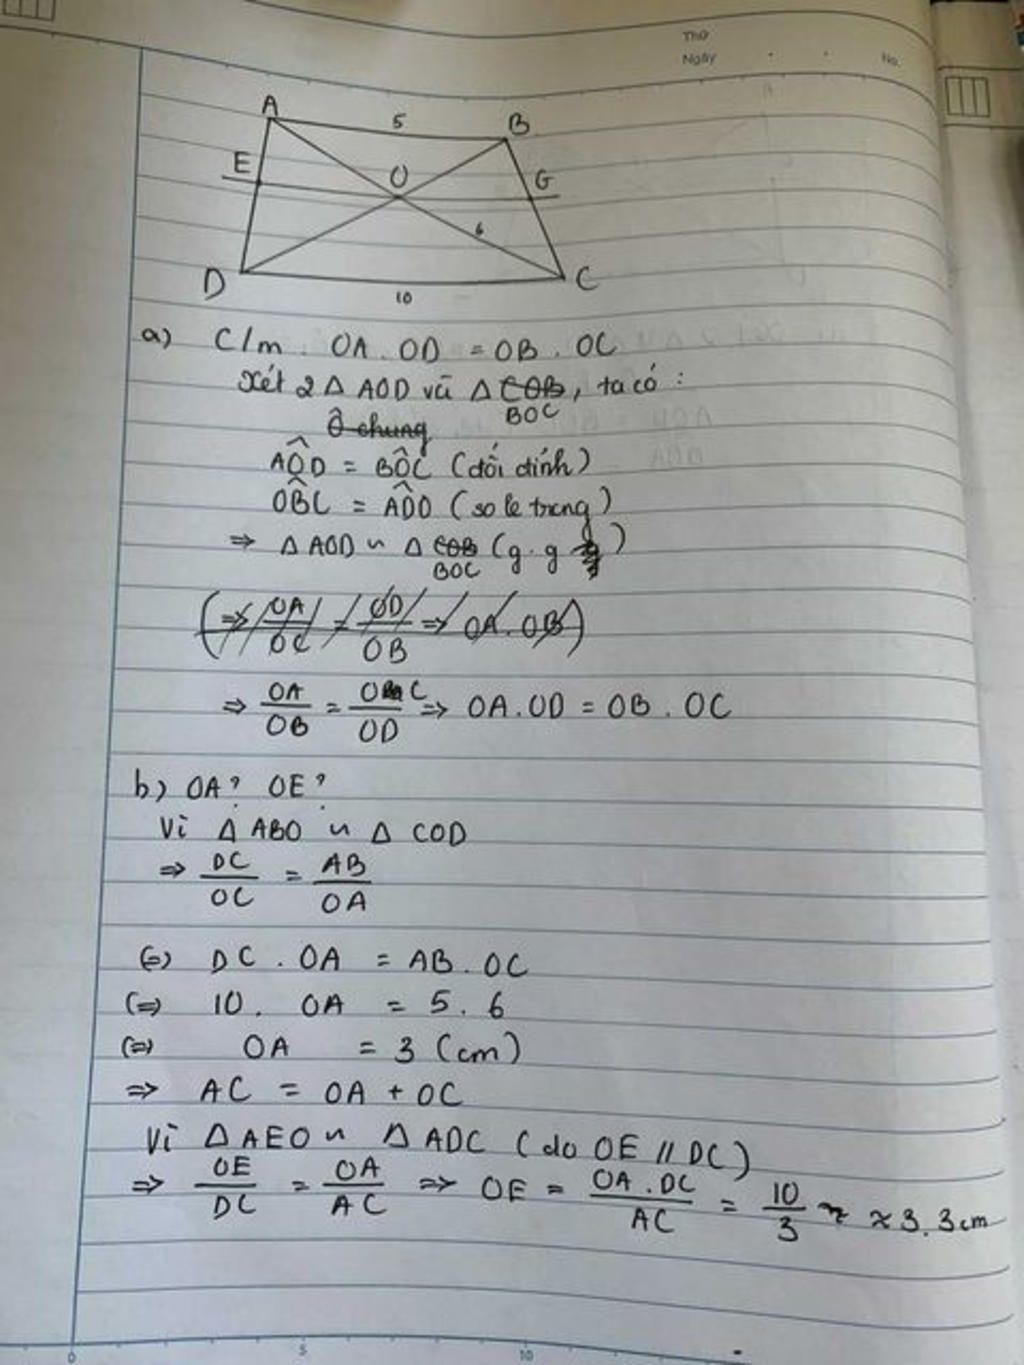 Thứ
Ngày
No.
A
5
B
E
O
G
6
D
C
10
a) C/m. OA.OD = OB.OC
Xét 2 Δ AOD và Δ COB, ta có:
BOC
Ô chung
AÔD = BÔC (đối đỉnh)
OB̂C = AD̂O (so le trong)
⇒ Δ AOD ∽ Δ COB (g.g)
BOC
(⇒ OA/OC = OD/OB ⇒ OA.OB)
⇒ OA/OB = OC/OD ⇒ OA.OD = OB.OC
b) OA? OE?
Vì Δ ABO ∽ Δ COD
⇒ DC/OC = AB/OA
(=) DC.OA = AB.OC
(=) 10. OA = 5.6
(=) OA = 3 (cm)
⇒ AC = OA + OC
Vì Δ AEO ∽ Δ ADC (do OE // DC)
⇒ OE/DC = OA/AC ⇒ OE = OA.DC/AC = 10/3 ≈ ≈ 3.3cm
0 5 10